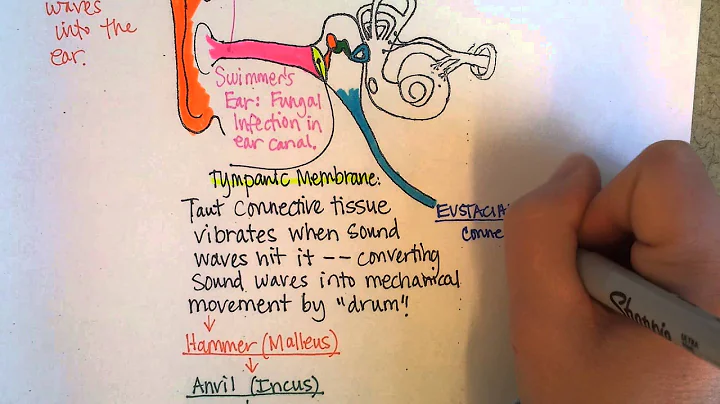 waves
into the
ear.
Swimmer's
Ear: Fungal
Infection in
ear canal.
Tympanic Membrane:
Taut connective tissue
vibrates when sound
waves hit it -- converting
sound waves into mechanical
movement by "drum"!
Hammer (Malleus)
Anvil (Incus)
EUSTACHIA
conne
Sharpie